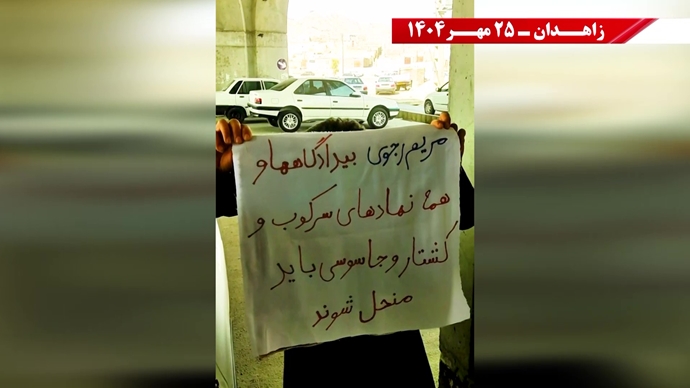 زاهدان ـ ۲۵ مهر ۱۴۰۴
مریم رجوی بیدادگاهها و
همهٔ نهادهای سرکوب و
کشتار و جاسوسی باید
منحل شوند